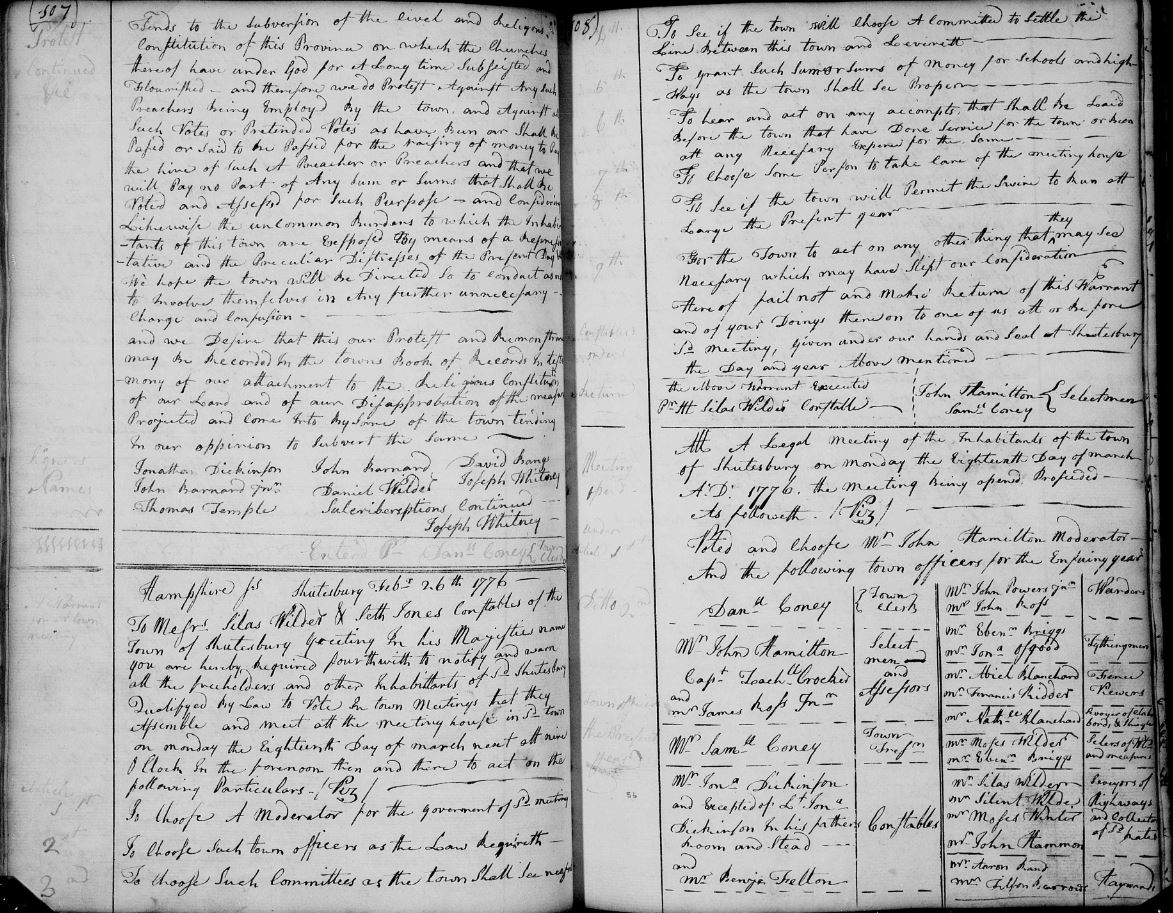 107
Protest
Continued
Tends to the subversion of the civel and Religious
Constitution of this Province on which the Churches
thereof have under God for a Long time Subsisted and
Flourished - and therefore we do Protest Against Any Such
Preachers being Employd by the town, and Against
Such Votes or Pretended Votes as have Ben or Shall be
Passd or Said to be Passed for the raising of money to
the hire of Such A Preacher or Preachers and that we
will Pay no Part of Any Sum or Sums that Shall be
Voted and Assessd for Such Purpose - and Considering
Likewise the uncommon Burdens to which the Inhabi
-tants of this town are Exposed By means of a Represen
-tative and the Peculiar Distresses of the Present Day
We hope the town will be Directed So to Conduct as not
to Involve themselves in Any further unnecessary
Charge and Confusion -
and we Desire that this our Protest and Remonstrance
may be Recorded In the towns Book of Records In testi
mony of our attachment to the Religious Constitution
of our Land and of our Disapprobation of the measures
Projected and Come Into By Some of the town tending
In our oppinion to Subvert the Same
Signers
Names
Jonathan Dickinson John Barnard David Bangs
John Barnard Jnr Daniel Wilder Joseph Whitney
Thomas Temple Subscriberptions Continued
Joseph Whitney
Enterd Pr Danll Coney Town Clerk
Hampshire ss Shutesbury Febr 26th 1776
A Warrant
for A town
meeting
To Messrs Silas Wilder & Seth Jones Constables of the
Town of Shutesbury Greeting In his Majesties name
you are hereby Required fourthwith to notify and warn
all the freeholders and other Inhabittants of Sd Shutesbury
Qualifyed By Law to Vote In town Meetings that they
Assemble and meet att the meeting house in Sd town
on monday the Eighteenth Day of march next att nine
O Clock In the forenoon then and there to act on the
following Particulars - (Viz)
Article 1st
To Choose A Moderator for the goverment of Sd meeting
2nd
To Choose Such town officers as the Law Requireth
3rd
To Choose Such Committees as the town Shall See
108
4th
To See if the town will Choose A Committed to Settle the
Line between this town and Leverett
5th
To grant Such Sum or Sums of Money for Schools and high
-Ways as the town Shall See Proper
6th
To hear and act on any accompts that Shall be Laid
before the town that have Done Service for the town or been
att any Necessary Expence for the Same
7th
To Choose Some Person to take Care of the meeting house
8th
To See if the town will Permit the Swine to Run att
Large the Present year
9th
For the Town to act on any other thing that they may See
Necessary which may have Slipt our Consideration
Hereof fail not and make Return of this Warrant
and of your Doings there on to one of us att or before
Sd meeting, given under our hands and Seal at Shutesbury
the Day and year Above mentioned
the Above Warrant Executed
Pr Me Silas Wilder Constable
John Hamilton
Samll Coney
Selectmen
Meeting
Att A Legal Meeting of the Inhabitants of the town
of Shutesbury on Monday the Eighteenth Day of march
A:D: 1776. the Meeting being opend Proseded
As followeth (Viz)
Voted and Choose Mr John Hamilton Moderator
And the following town officers for the Ensuing year
Danll Coney
Town Clerk
Mr John Hamilton
Capt Zachll Crocker
and
mr James Ross Jnr
Select
men
and
Assessors
Mr Samll Coney
Town
Treasr
Mr Jona Dickinson
and Excepted of Lt Jona
Dickinson In his fathers
Room and Stead
and
Mr Benja Felton
Constables
Mr John Powers Jnr
mr John Ross
Wardens
mr Ebenr Briggs
mr Jona Osgood
Tythingmen
mr Abiel Blanchard
mr Francis Kidder
Fence
Viewers
mr Nathll Blanchard
mr Moses Wilder
mr Ebenr Briggs
and measures
mr Silas Wilder
mr Silent Wilde
mr Moses Winter
mr John Hammon
Surveyors of
Highways
and Collectors
of Sd rates
mr Aaron Rand
Haywards